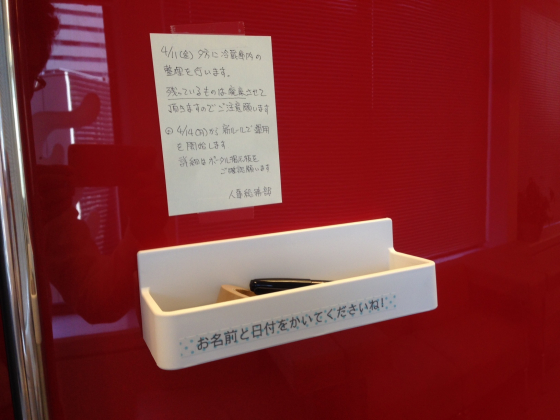 4/11(金) 夕方に冷蔵庫内の
整理を行います。
残っているものは廃棄させて
頂きますのでご注意願します
◎ 4/14(月)から新ルールで運用
を開始します
詳細はポータル掲示板を
ご確認願います
人事総務部
お名前と日付をかいてくださいね!